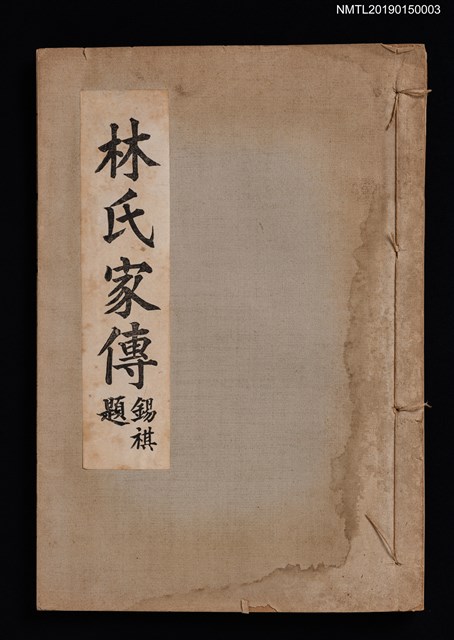 NMTL20190150003
林氏家傳
錫祺
題